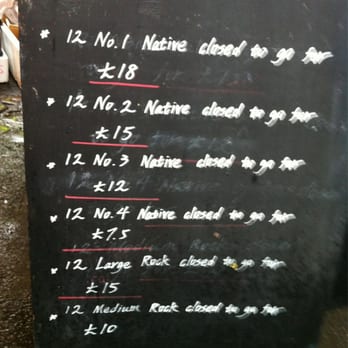 * 12 No.1 Native closed to go for
£18
* 12 No.2 Native closed to go for
£15
* 12 No.3 Native closed to go for
£12
* 12 No.4 Native closed to go for
£7.5
* 12 Large Rock closed to go for
£15
* 12 Medium Rock closed to go for
£10